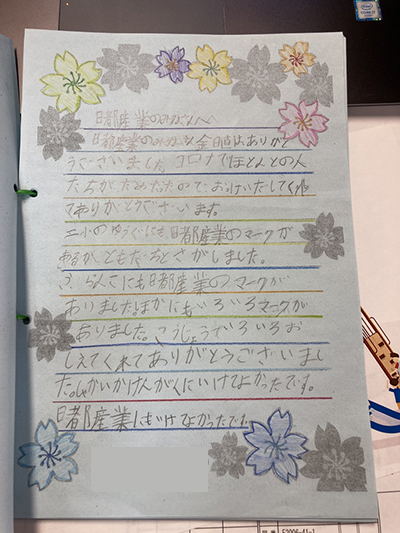 日都産業のみなさんへ
日都産業のみなさん金曜日はありがと
うございました。コロナでほとんどの人
たちがだめだったので、おけいだしてくれ
てありがとうございます。
二小のゆうぐにも日都産業のマークが
あるか、ともだちとさがしました。
ぶらんこにも日都産業のマークが
ありました。ほかにもいろいろマークが
ありました。こうじょうでいろいろお
しえてくれてありがとうございまし
た。しゃかいかけんがくにいけてよかったです。
日都産業にもいけてよかったです。
intel
CORE i7